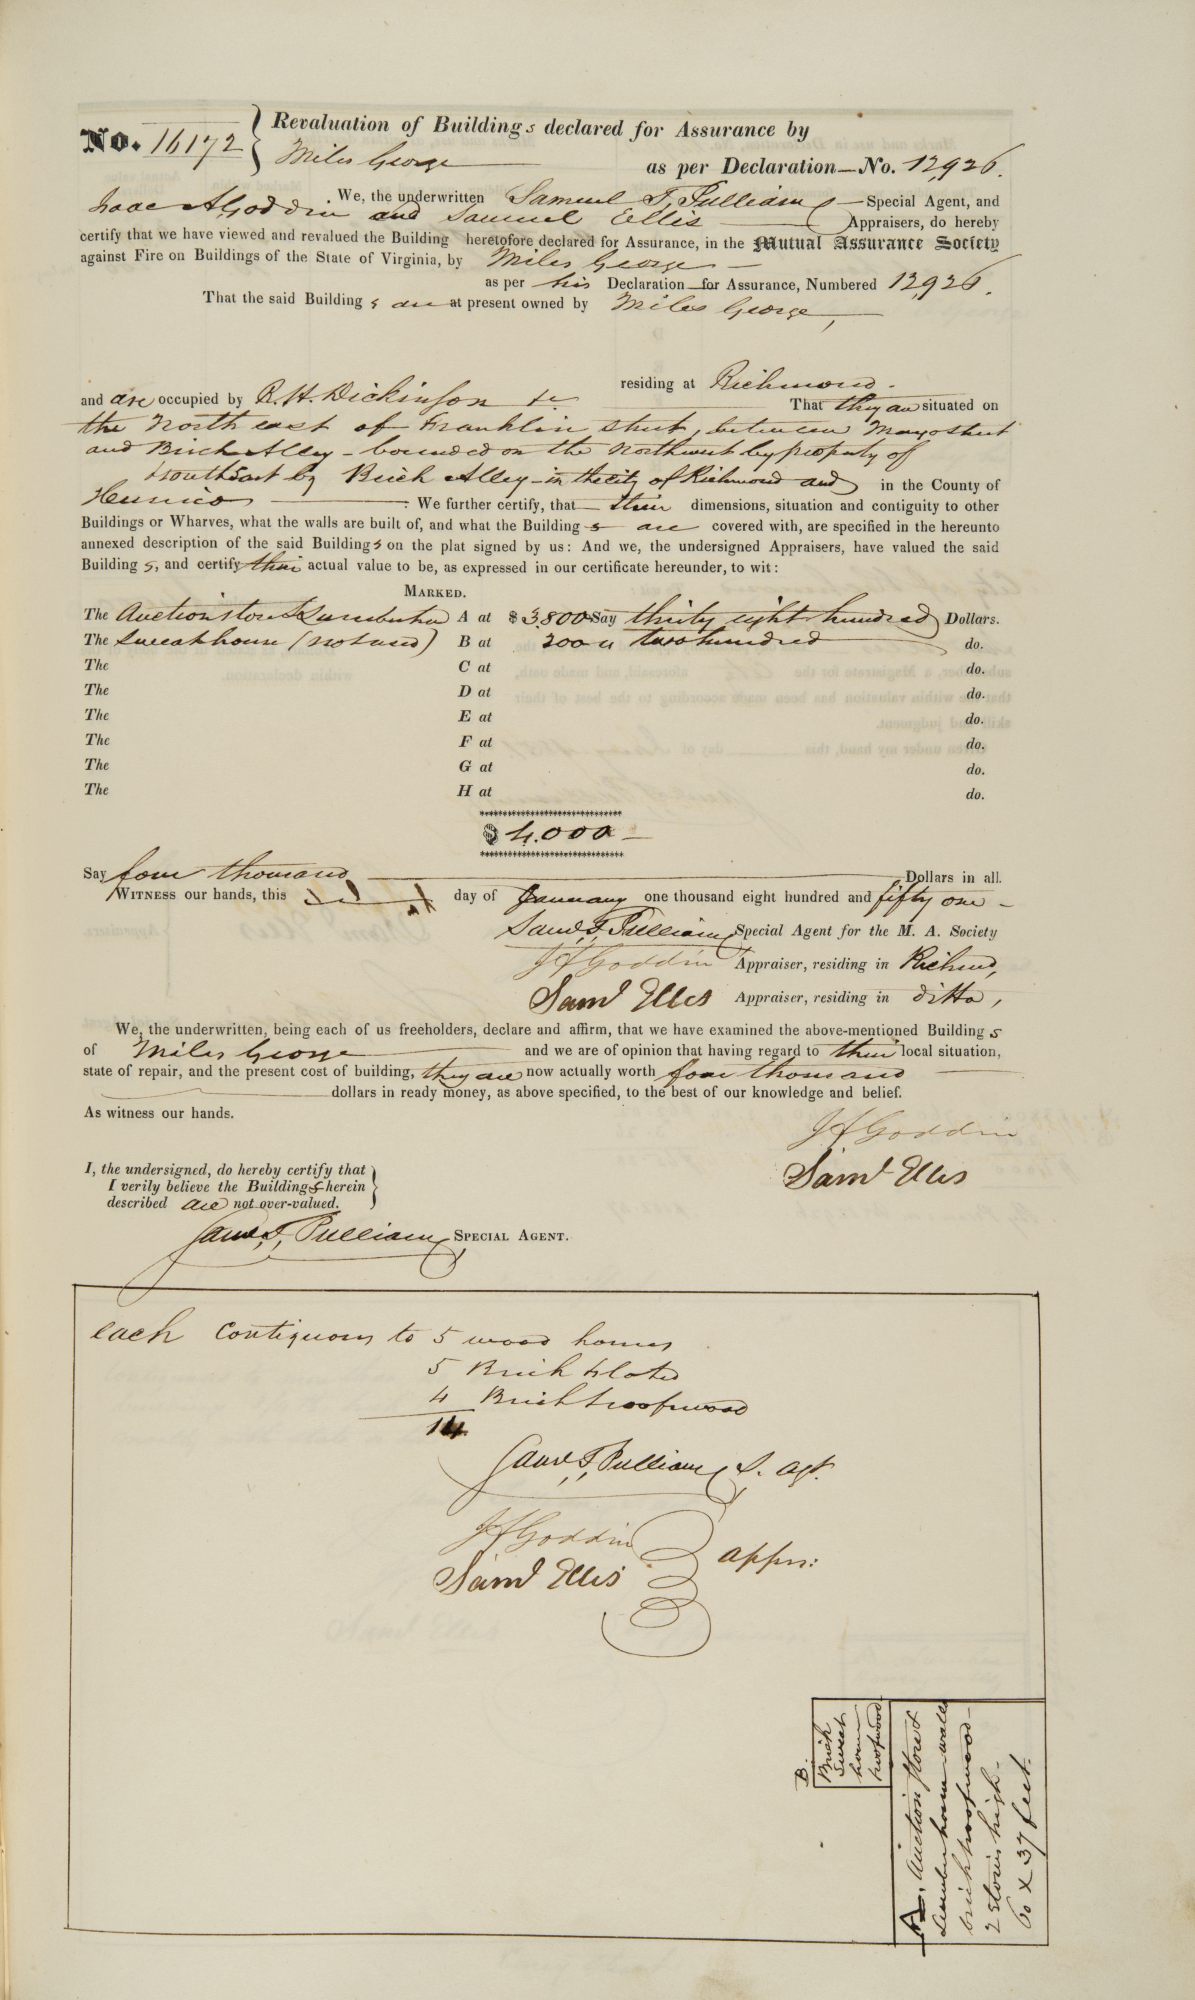 No. 16172 Revaluation of Buildings declared for Assurance by
Miles George
as per Declaration—No. 12,926.
We, the underwritten Samuel T, Pulliam — Special Agent, and
Isaac A Goddin and Samuel Ellis — Appraisers, do hereby
certify that we have viewed and revalued the Building heretofore declared for Assurance, in the Mutual Assurance Society
against Fire on Buildings of the State of Virginia, by Miles George —
as per his Declaration for Assurance, Numbered 12,926.
That the said Building s are at present owned by Miles George,
residing at Richmond.
and are occupied by R. H. Dickinson &c. That they are situated on
the North east of Franklin street, between Mayo street
and Brick Alley — bounded on the Northwest by property of
southeast by Brick Alley — in the city of Richmond and in the County of
Henrico — We further certify, that their dimensions, situation and contiguity to other
Buildings or Wharves, what the walls are built of, and what the Building s are covered with, are specified in the hereunto
annexed description of the said Buildings on the plat signed by us: And we, the undersigned Appraisers, have valued the said
Building s, and certify their actual value to be, as expressed in our certificate hereunder, to wit:
MARKED.
The Auction store & Lumberhou A at $3,800 Say thirty eight hundred Dollars.
The sweat house (not used) B at 200 " two hundred do.
The C at do.
The D at do.
The E at do.
The F at do.
The G at do.
The H at do.
$4,000 —
Say four thousand Dollars in all.
WITNESS our hands, this day of January one thousand eight hundred and fifty one —
Saml T, Pulliam Special Agent for the M. A. Society
I A Goddin Appraiser, residing in Richmd,
Saml Ellis Appraiser, residing in ditto,
We, the underwritten, being each of us freeholders, declare and affirm, that we have examined the above-mentioned Building s
of Miles George and we are of opinion that having regard to their local situation,
state of repair, and the present cost of building, they are now actually worth four thousand
dollars in ready money, as above specified, to the best of our knowledge and belief.
As witness our hands.
I A Goddin
Saml Ellis
I, the undersigned, do hereby certify that
I verily believe the Buildings herein
described are not over-valued.
Saml T, Pulliam SPECIAL AGENT.
each contiguous to 5 wood houses
5 Brick & slated
4 Brick & roof wood
14
Saml T, Pulliam S. Agt.
I A Goddin
Saml Ellis
apprs:
B.
Brick
Sweat
house
roof wood
A, Auction store &
Lumber house walls
brick roof wood —
2 stories high —
60 x 37 feet.